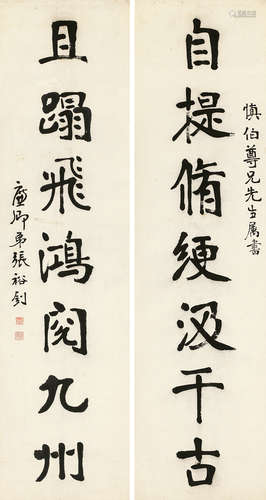 慎伯尊兄先生属書
自提脩綆汲千古
且蹋飛鴻閱九州
廉卿弟張裕釗